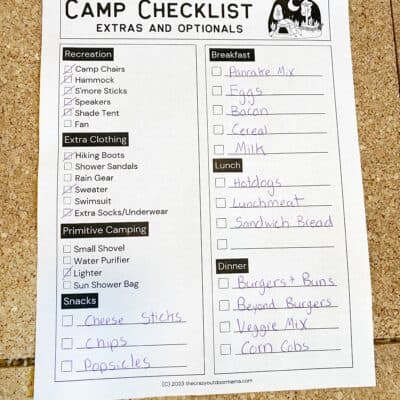 CAMP CHECKLIST
EXTRAS AND OPTIONALS
Recreation
Camp Chairs
Hammock
S'more Sticks
Speakers
Shade Tent
Fan
Extra Clothing
Hiking Boots
Shower Sandals
Rain Gear
Sweater
Swimsuit
Extra Socks/Underwear
Primitive Camping
Small Shovel
Water Purifier
Lighter
Sun Shower Bag
Snacks
Cheese Sticks
Chips
Popsicles
Breakfast
Pancake Mix
Eggs
Bacon
Cereal
Milk
Lunch
Hotdogs
Lunchmeat
Sandwich Bread
Dinner
Burgers + Buns
Beyond Burgers
Veggie Mix
Corn Cobs
(C) 2023 thecrazyoutdoormama.com